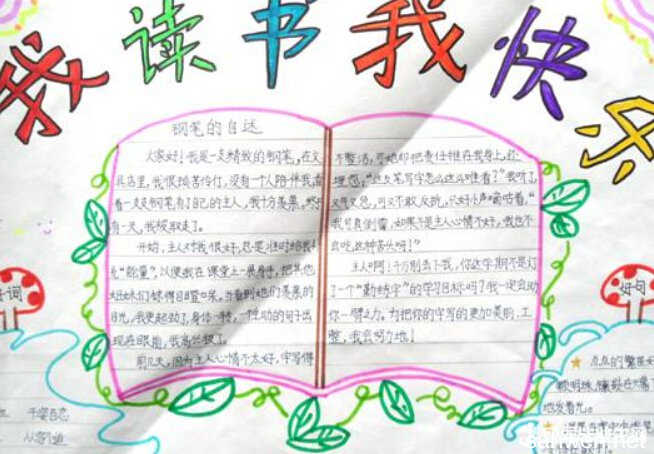 我读书我快乐
钢笔的自述
大家好!我是一支精致的钢笔,在文
具店里,我很孤苦伶仃,没有一个人陪伴我,
看一支支钢笔有了自己的主人,我十分羡慕,
有一天,我被取走了。
开始,主人对我很好,总是准时给我
"能量",以便我在课堂上一展身手,把其他
姐妹们惊得目瞪口呆。当看到她们羡慕的
目光,我更起劲了,身体一转,一个生动的句子出
现在眼前,我高兴极了。
前几天,因为主人心情不太好,字写得
不整洁,可她却把责任推在我身上,还
埋怨:"这支笔写字怎么这么难看?"我听了
又气又怨,可又不敢反抗,只好小声嘀咕着,"
我可真倒霉,如果不是主人心情不好,我也不
会吃这种苦头呀!"
主人啊!千万别丢下我,你这学期不是订
了一个"勤练字"的学习目标吗?我一定会助
你一臂之力。为把你的字写的更加美丽,工
整,我会努力地!
好词
千姿百态
从容
好句
点点的繁星好
地发着光。